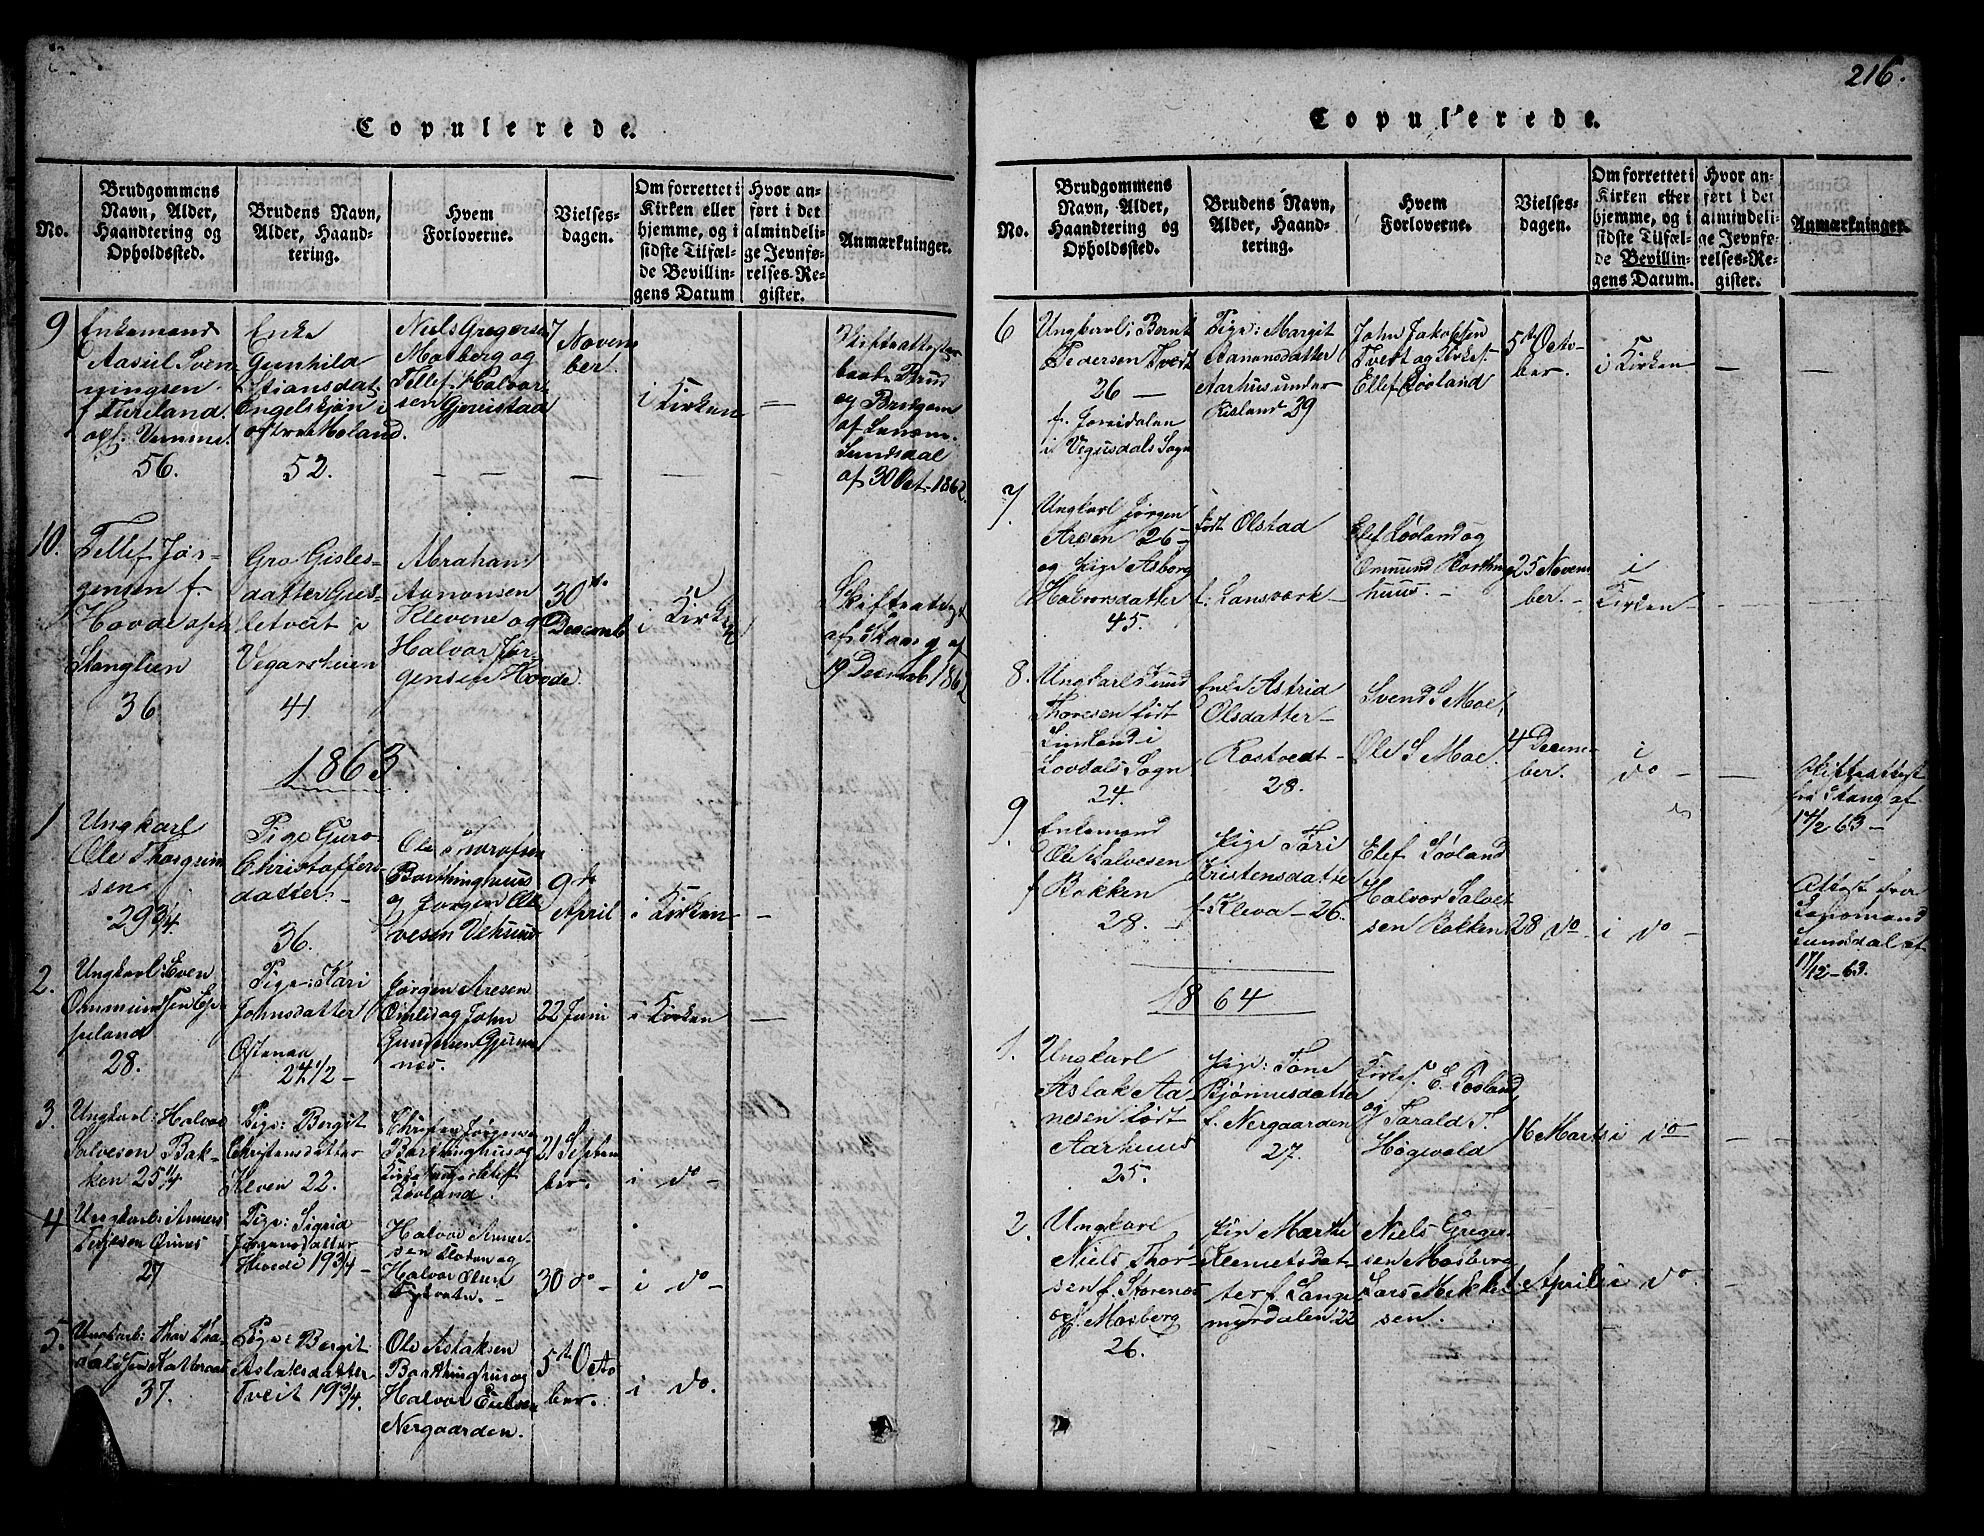 216.
Copulerede.
No.
Brudgommens
Navn, Alder,
Haandtering og
Opholdssted.
Brudens Navn,
Alder, Haand-
tering.
Hvem
Forloverne.
Vielses-
dagen.
Om forrettet i
Kirken eller
hjemme, og i
sidste Tilfæl-
de Bevillin-
gens Datum
Hvor an-
ført i det
almindeli-
ge Jevnfø-
relses-Re-
gister.
Anmærkninger.
9
Enkemand
Aasul Sven
ningsen
f. Tureland
opf.
56.
Enke
Gunhild
Engelskjøn i
52.
Niels Gregersen
Mosberg og
Tellef Halvor
sen Gjerustad
7 Novem
ber.
i Kirken
Skifteattester
baade Brud
og Brudgom
af Lensm.
Sundsdal
af 30 Oct. 1862.
10.
Tellef Jør-
gensen f.
Hovde oph
Stanglien
36
Gro Gisles-
datter Gus-
letveit i
Vegarsheien
41.
Abraham
Aanonsen
Klevene og
Halvor Jør-
gensen Hovde.
30te
Decemb
i Kirken
Skifteattest
af Staag af
19 Decemb 1862
1863
1
Ungkarl
Ole Thorgrim
sen
29 3/4.
Pige Guro
Christoffers-
datter
36.
Ole Torafsen
Barthinghuus
og Jørgen Ol
vesen Vehuus
9de
April
i Kirken
2.
Ungkarl: Even
Osmundsen Esp
peland
28.
Pige: Kari
Johnsdatter
Østenaa
27 1/2
Jørgen Aresen
Omlid og John
Gundersen Gjerum
næs.
22 Juni
i Kirken
3.
Ungkarl: Halvor
Salvesen Bak-
ken 25 1/4
Pige: Bergit
Christensdatter
Kleven 22.
Christen Jørgensen
Barthinghus og
Kirkesanger Ellef
Løvland.
21 Septem
ber.
i do
4
Ungkarl: Anners
Terjesen Omnes
27
Pige: Sigrid
Jørgensdatter
Hovde 19 3/4
Halvor Anner
sen Sloten og
Halvor Olsen
30 do
i do
5.
Ungkarl: Thor Tha-
raldsen
37.
Pige: Bergit
Aslaksdatter
Tveit 19 3/4.
Ole Aslaksen
Barthinghus og
Halvor Eielsen
Nergaarden.
5te Octo
ber.
i do.
Copulerede.
No.
Brudgommens
Navn, Alder,
Haandtering og
Opholdssted.
Brudens Navn,
Alder, Haand-
tering.
Hvem
Forloverne.
Vielses-
dagen.
Om forrettet i
Kirken eller
hjemme, og i
sidste Tilfæl-
de Bevillin-
gens Datum.
Hvor an-
ført i det
almindeli-
ge Jevnfø-
relses-Re-
gister.
Anmærkninger.
6
Ungkarl: Bernt
Pedersen Tveit
26
f.
i Vegusdals Sogn
Pige: Margit
Aanonsdatter
Aarhus under
Risland 29
John Jakobsen
Tveit og Kirkes.
Ellef Løvland
5te Octo-
ber.
i Kirken
7
Ungkarl Jørgen
Aresen 26
og Pige Asborg
Halvorsdatter
45.
født Olstad
f. Lansverk
Elef Løvland og
Osmund Barthing
huus.
25 Novem
ber.
i
Kirken
8.
Ungkarl Knud
Thoresen født
Limland i
Lovdals Sogn
24.
Enke Astrid
Olsdatter
Rostvedt
28.
Svend S Moe,
Ole S Moe.
4 Decem-
ber.
i
do
Skifteattest
fra Staag af
1/2 63
9
Enkemand
Ole Salvesen
f Bakken
28.
Pige Tøri
Kristensdatter
f. Kleva 26.
Elef Løvland
Halvor Salve
sen Bakken
28 do
i do
Attest fra
Lensmand
Sunsdal af
17/12 63.
1864
1.
Ungkarl
Aslak Aa-
nesen født
Aarhuus
25.
Pige: Tone
Bjørnusdatter
f. Nergaarden
27.
Kirkes. E. Løvland
og Tarald T.
Høgevold
16 Marts
i do
2.
Ungkarl
Niels Thor-
sen f. Storenæs
opf. Mosberg
26.
Pige Marthe
Klemetsdat
ter f. Lange
myrdalen 22
Niels Greger-
sen Mosberg
Lars Mikkel
sen.
1 April
i do